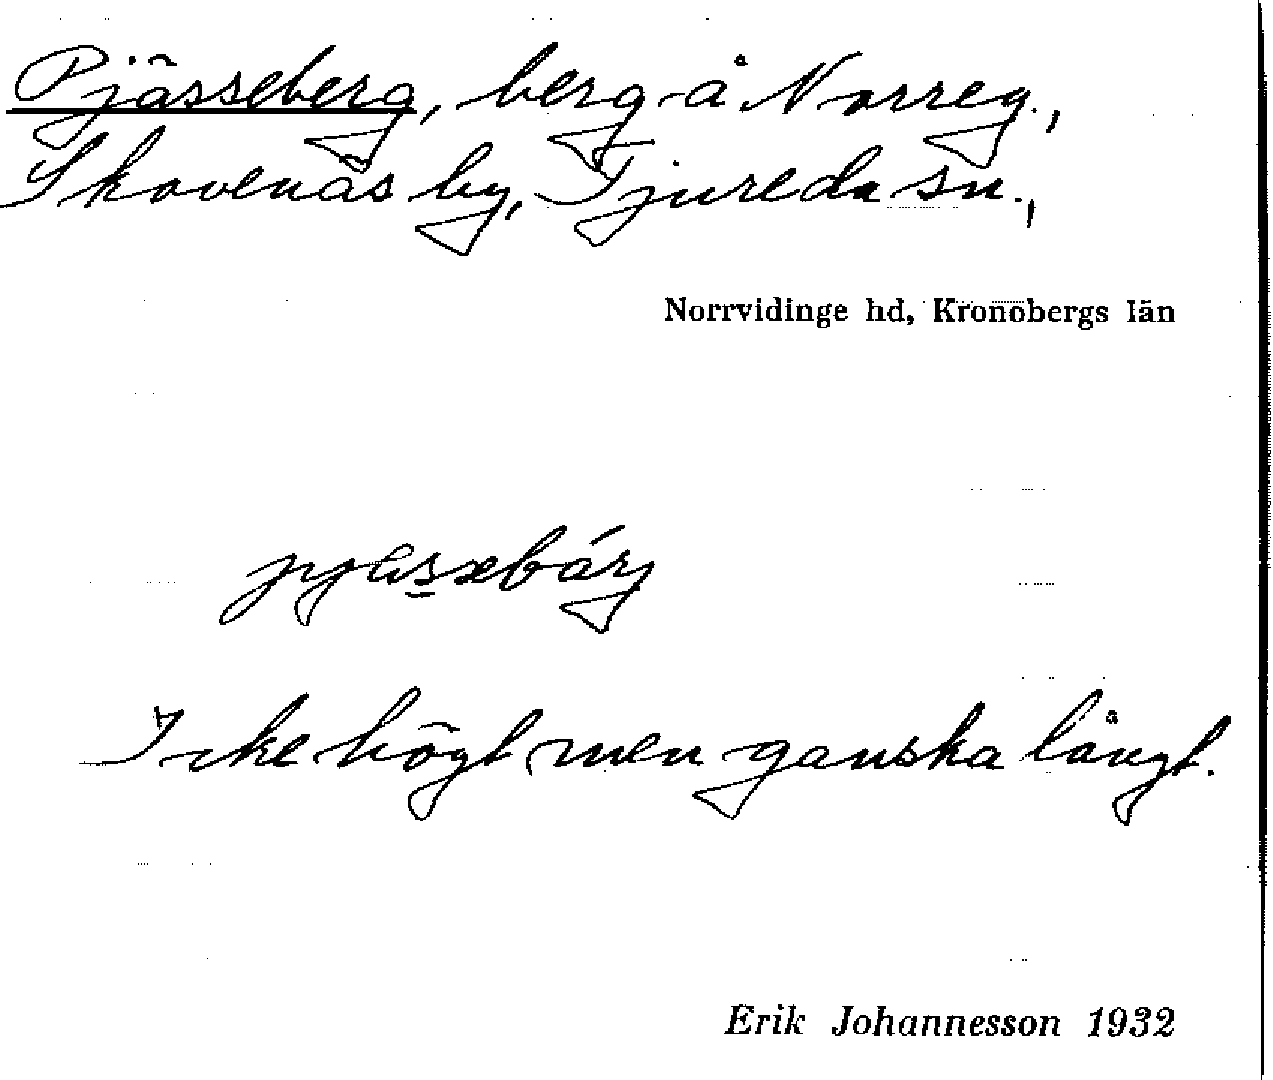 Pjässeberg, berg å Norreg.,
Skovenäs by, Tjureda sn.,
Norrvidinge hd, Kronobergs län
Icke högt men ganska långt.
Erik Johannesson 1932